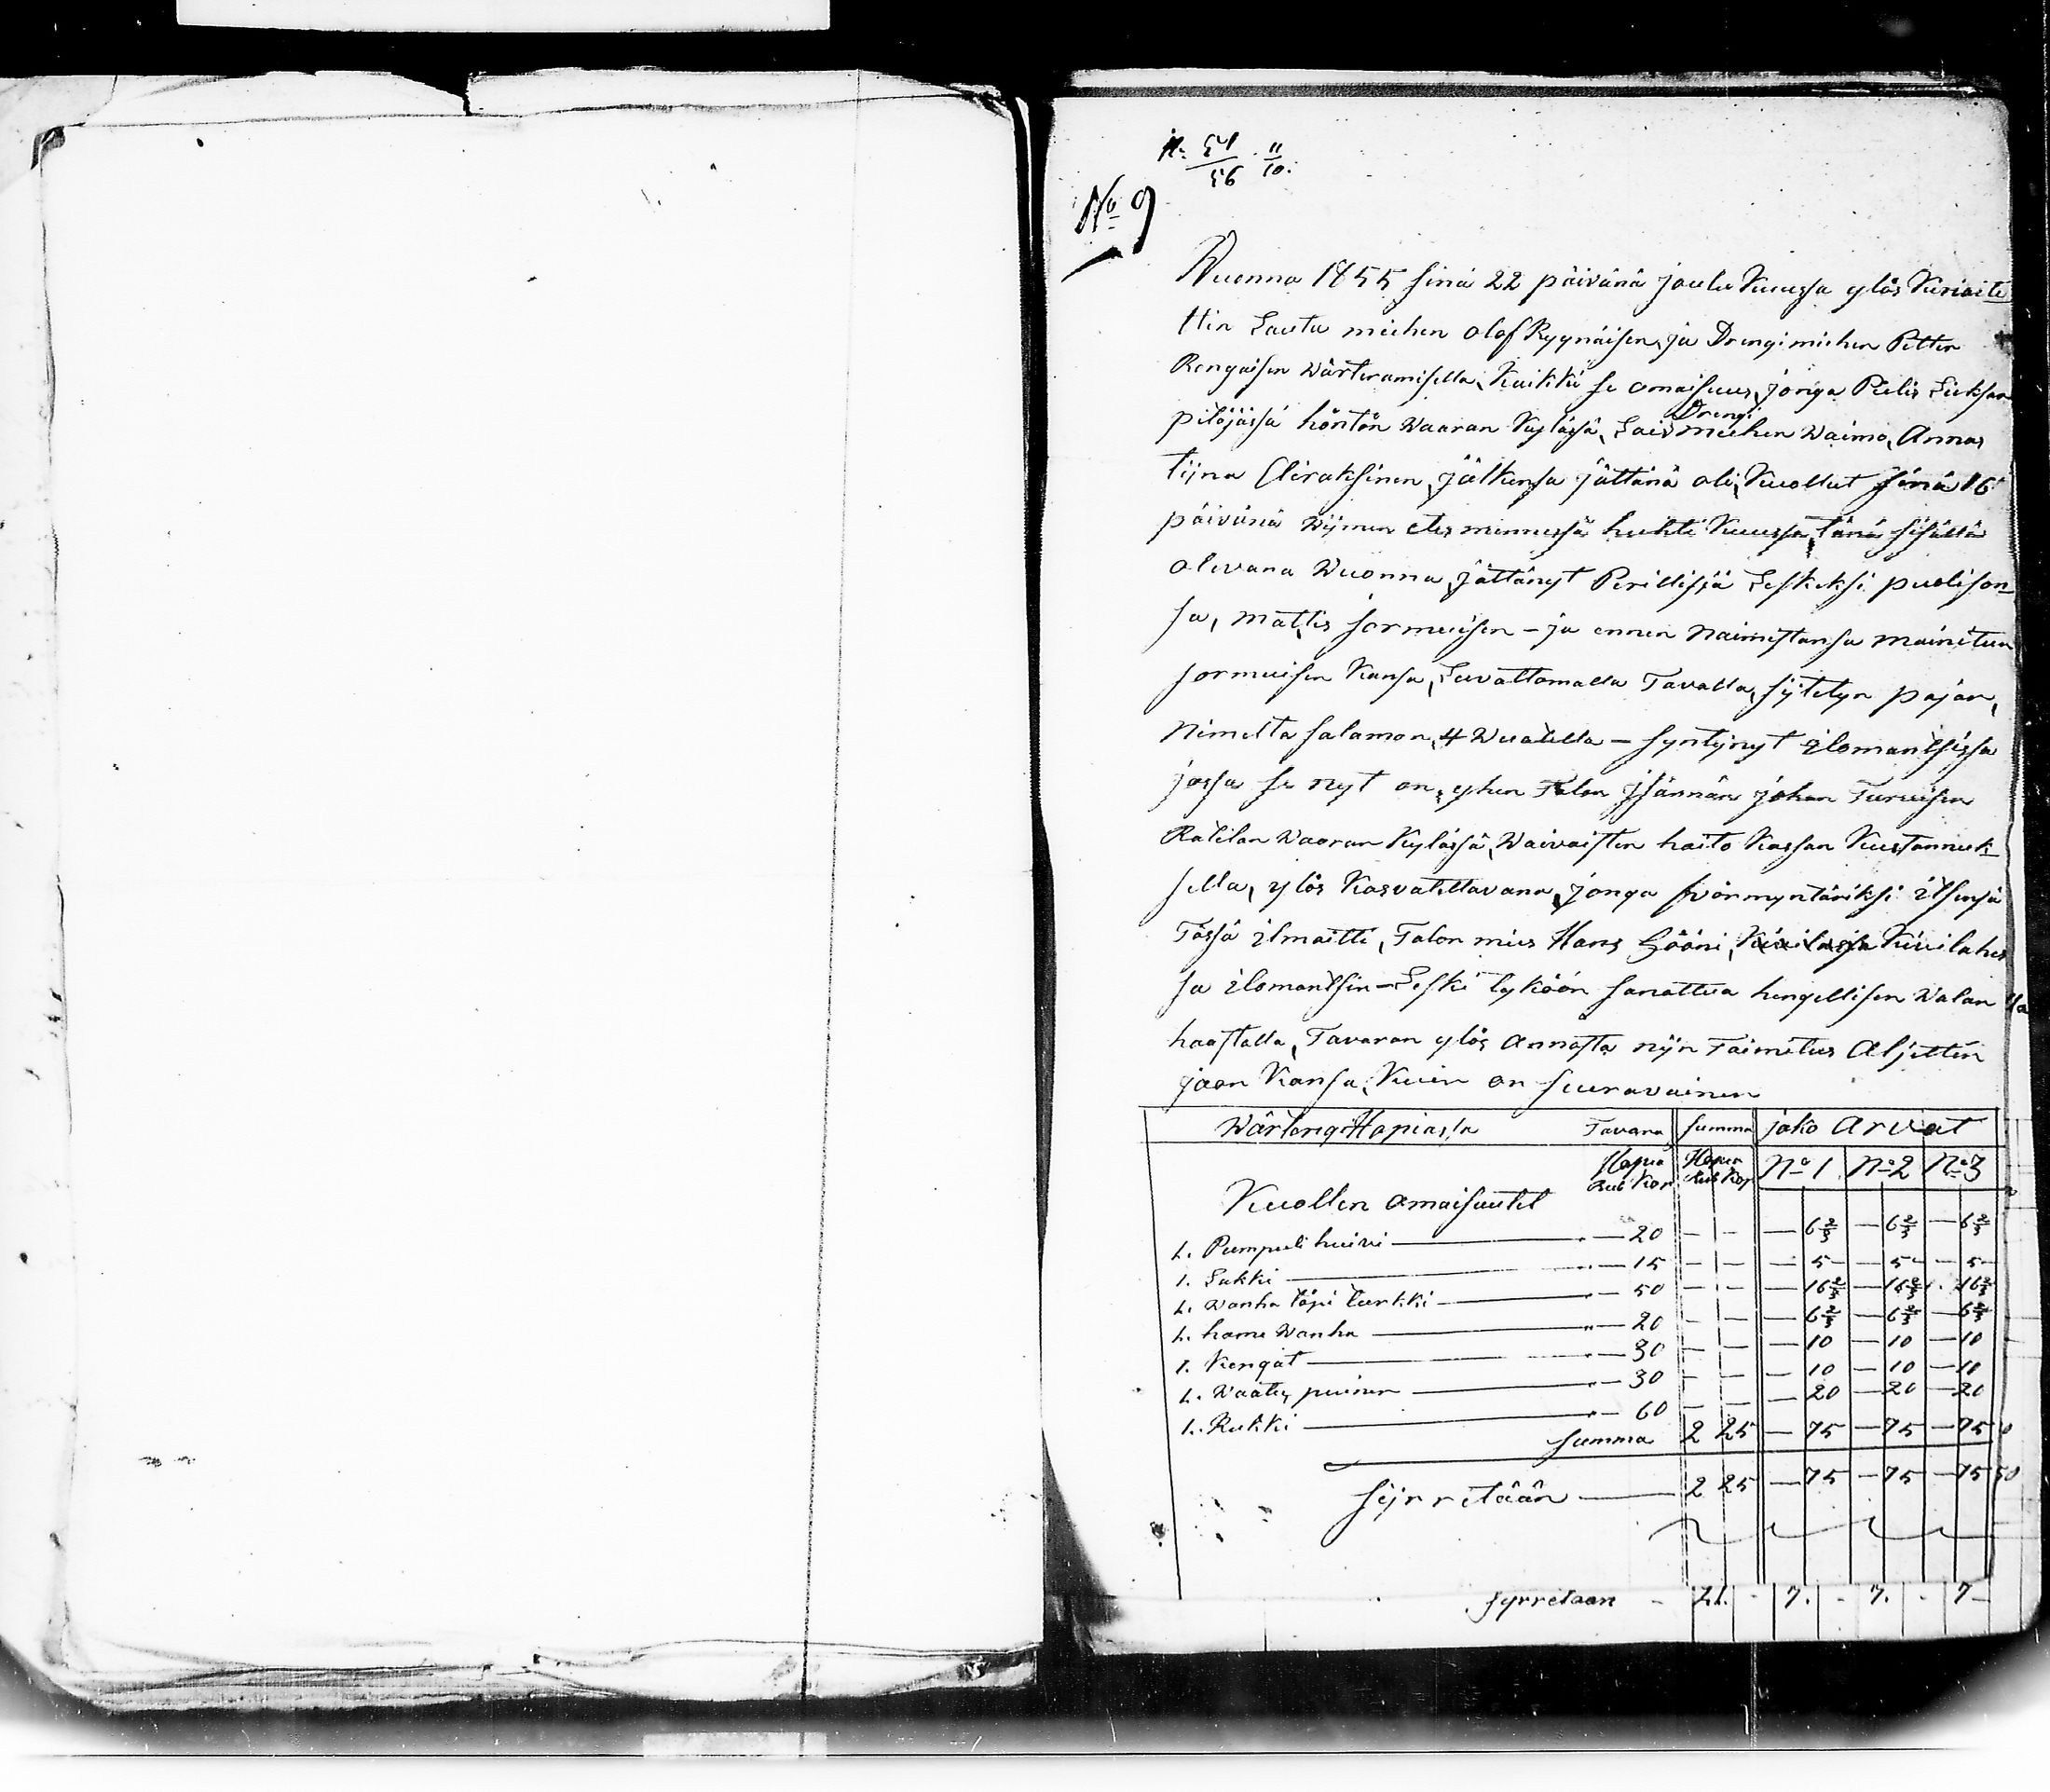 54/56 . 11/10.
No 9
Wuonna 1855 sinä 22 päivänä joulu Kuussa ylös Kirioite
ttin Lauta miehen Olof Ryynäisen, ja Drengimiehen Petter
Rengaisen wärteramisella, Kaikki se omaisuus, jonga Pielis
pitäjässä höntön Waaran Kylässä, Drengi miehen Waimo, Anna
tijna Eliraksinen, jälkensä jättänä oli, Kuollut sinä 16
päivänä Wijmen etes mennessä huhti Kuussa, tänä sisällä
olevana Wuonna, jättänyt Perillisjä Leskeksi puolison-
sa, Mattis sormuisen - ja ennen naimistansa mainitun
sormuisen Kansa, Luvattomalla Tavalla, sijtetyn pojan,
Nimelta salamon, 4 Wuatella - syntynyt ilomantsissa
jossa se nyt on, yhen Talon jsännän johan Turuisen
Ratilan Waaran Kylässä, Waivaisten hoito Kassan Kustannuk-
sella, ylös Kasvatettavana, jonga förmyntäriksi itsensä
Tässä ilmoitti, Talon mies Hans Kiivilahes
sa ilomantsin - Leski lyköön sanattua hengellisen Walan
haastalla, Tavaran ylös annosta nijn Toimitus Aljettin
jaon Kansa, Kuin on seuravainen
Wärtengi Hopiassa Tavara summa jako arvat
Hopea Hopea No 1 No 2 No 3
Rub Kop Rub Kop
Kuollen omaisuutet
1. Pumpuli huivi — 20 — — — 6 2/3 — 6 2/3 — 6 2/3
1. Lakki — 15 — — — 5 — 5 — 5
1. Wanha töpi turkki — 50 — — — 16 2/3 — 16 2/3 16 2/3
1. hame Wanha — 20 — — — 6 2/3 — 6 2/3 — 6 2/3
1. Kengät — 30 — — — 10 — 10 — 10
1. Waatey puinen — 30 — — — 10 — 10 — 10
1. Rukki — 60 — — — 20 — 20 — 20
summa 2 25 — 75 — 75 — 75
sijrretään — 2 25 — 75 — 75 — 75
syrretaan - 21. - 7. - 7. - 7 -